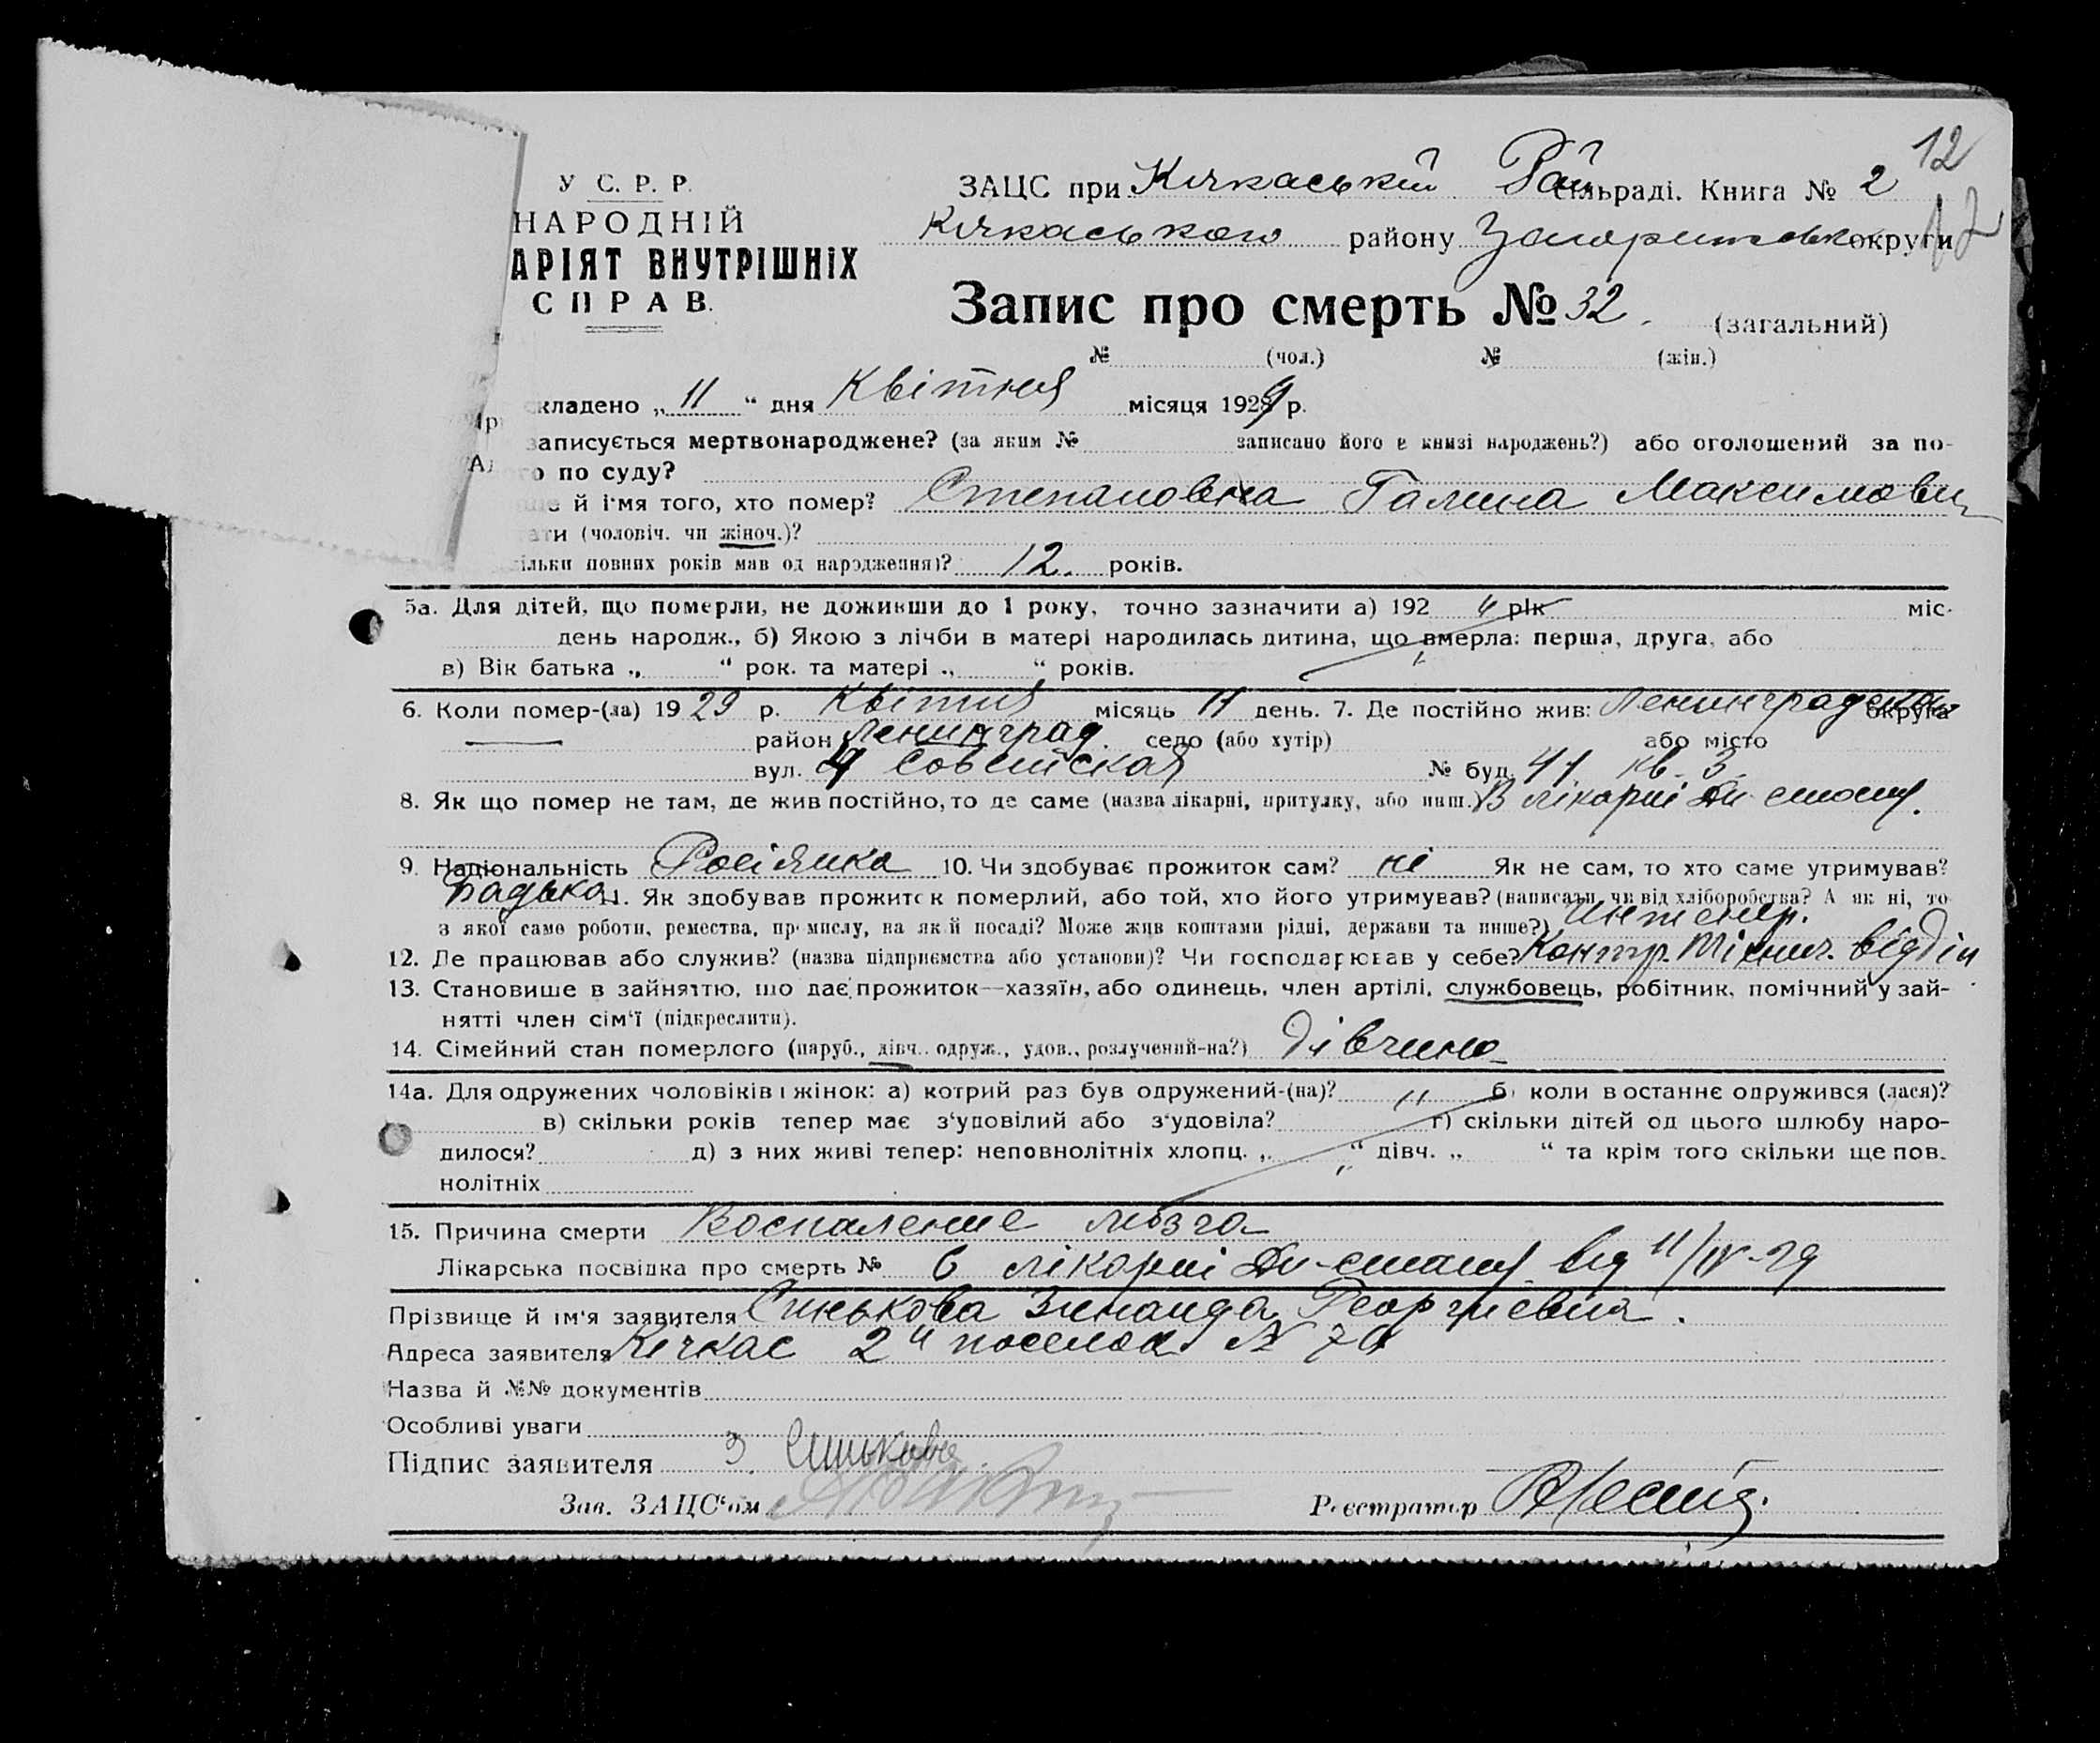 12
У С. Р. Р.
ЗАЦС при Кічкаській Рай сільраді. Книга № 2
НАРОДНІЙ
Кічкаського району Запорижськ округи
АРІЯТ ВНУТРІШНІХ
СПРАВ.
Запис про смерть № 32. (загальний)
№ (чол.) № (жін.)
кладено „ 11 “ дня Квітня місяця 1929 р.
записується мертвонароджене? (за яким № записано його в книзі народжень?) або оголошений за по-
о по суду?
й і'мя того, хто помер? Степановна Галина Максимовн
ати (чоловіч. чи жіноч.)?
ільки повних років мав од народження)? 12. років.
5а. Для дітей, що померли, не доживши до 1 року, точно зазначити а) 192 рік міс.
день народж., б) Якою з лічби в матері народилась дитина, що вмерла: перша, друга, або
в) Вік батька „ “ рок. та матері „ “ років.
6. Коли помер-(ла) 1929 р. Квітня місяць 11 день. 7. Де постійно жив: Ленинградська округа
район Ленинград. село (або хутір) або місто
вул. 4 Советская № буд. 41 кв. 3.
8. Як що помер не там, де жив постійно, то де саме (назва лікарні, притулку, або инш.) В лікарні
9. Національність Росіянка 10. Чи здобуває прожиток сам? ні Як не сам, то хто саме утримував?
Батько 11. Як здобував прожиток померлий, або той, хто його утримував? (написати, чи від хліборобства? А як ні, то
з якої саме роботи, ремества, промислу, на якій посаді? Може жив коштами рідні, держави та инше?) Инженер.
12. Де працював або служив? (назва підприємства або установи)? Чи господарював у себе? Контр. відділ
13. Становище в зайняттю, що дає прожиток—хазяїн, або одинець, член артілі, службовець, робітник, помічний у зай-
нятті член сім'ї (підкреслити).
14. Сімейний стан померлого (паруб., дівч., одруж., удов., розлучений-на?) дівчина
14а. Для одружених чоловіків і жінок: а) котрий раз був одружений-(на)? б) коли в останнє одружився (лася)?
в) скільки років тепер має з'удовілий або з'удовіла? г) скільки дітей од цього шлюбу наро-
дилося? д) з них живі тепер: неповнолітніх хлопц. „ “ дівч. „ “ та крім того скільки ще пов.
нолітніх
15. Причина смерти Воспаление мозга
Лікарська посвідка про смерть № 6 лікарні від 11/IV-29
Прізвище й ім'я заявителя Синькова Зинаида Георгиевна.
Адреса заявителя Кічкас 2й поселок №
Назва й №№ документів
Особливі уваги
Підпис заявителя З. Синькова
Зав. ЗАЦС'ом Реєстратор